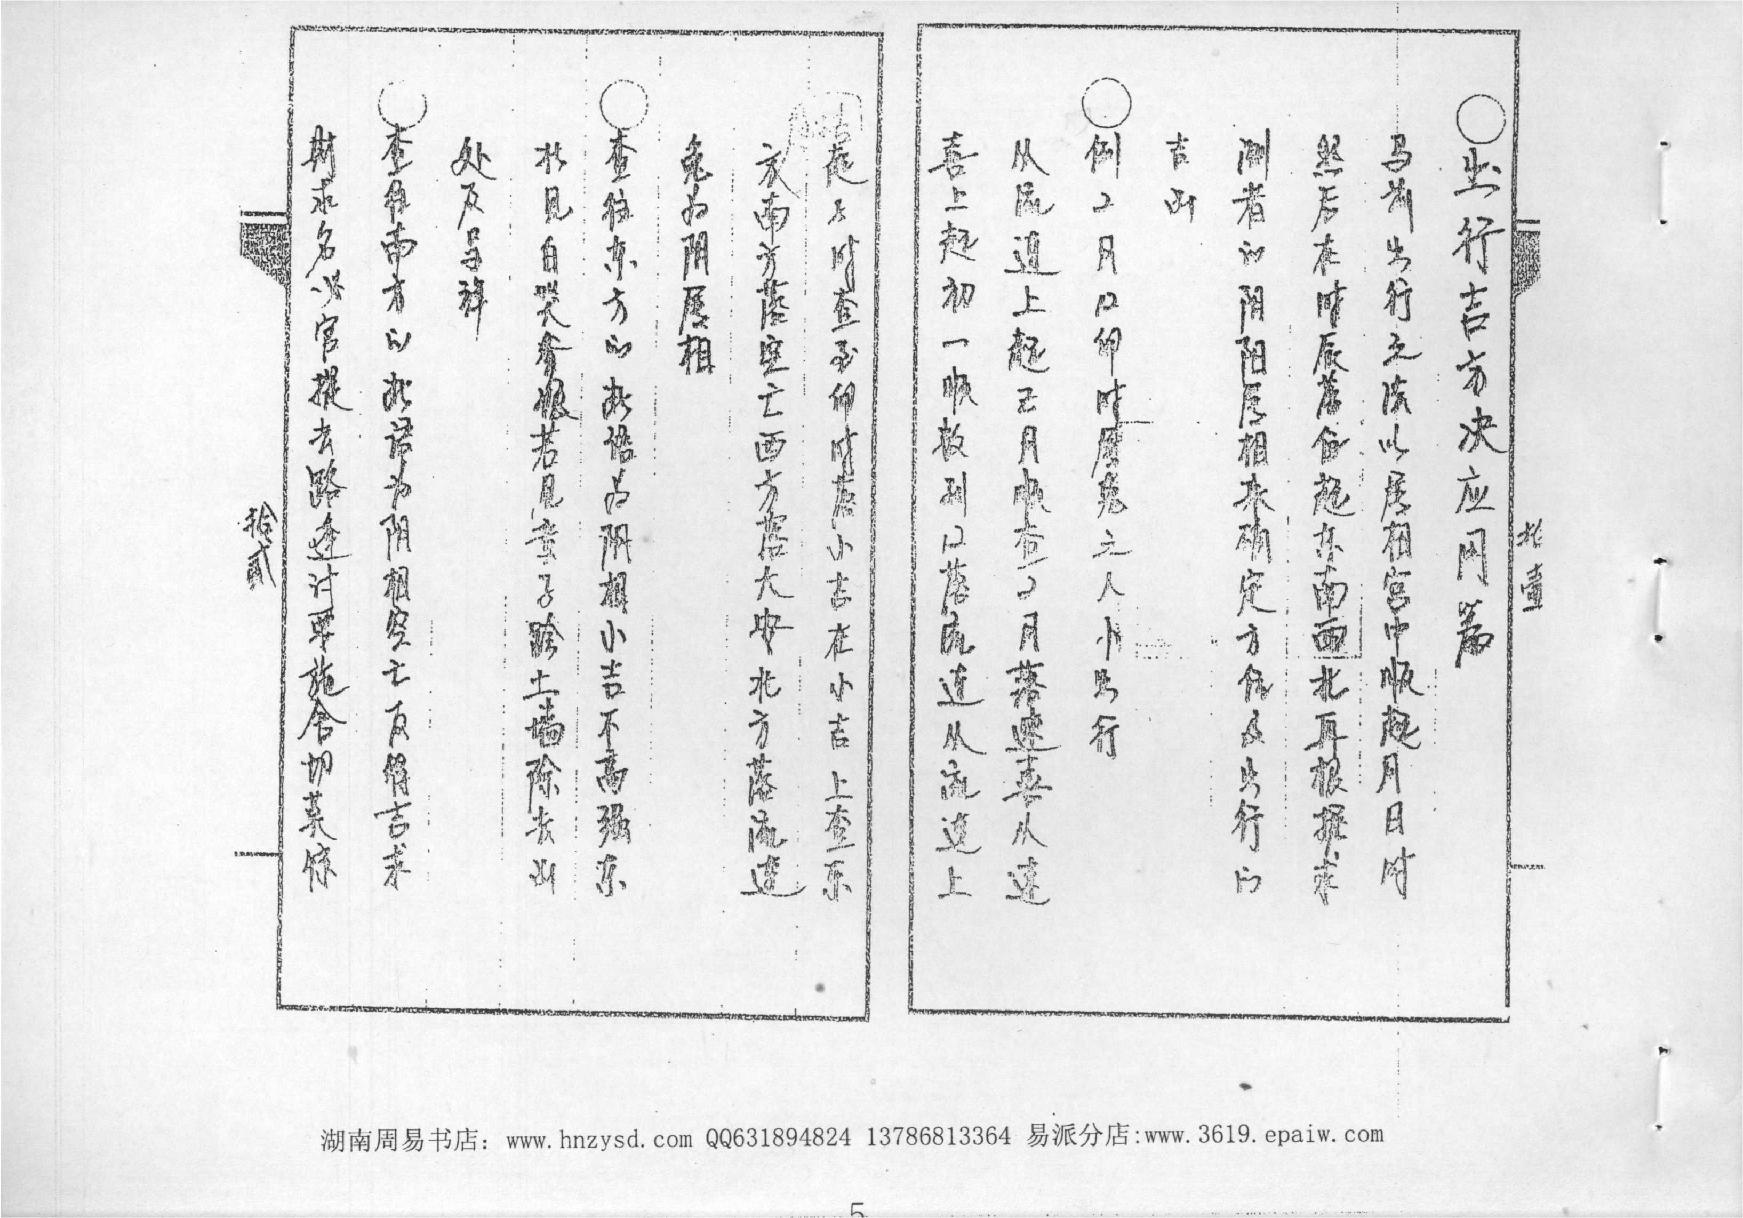 出行吉方决应用篇
马前出行之法以属相宫中顺起月日时
然后在时辰落位起东南西北再根据求
测者的阴阳属相来确定方位及出行的
吉凶
例2月12卯时属兔之人出行
从流连上起正月顺查2月落速喜从速
喜上起初一顺数到12落流连从流连上
起子时查至卯时落小吉在小吉上查东
方南方落空亡西方落大安北方落流连
兔为阴属相
查往东方的批语为阴相小吉不高强东
北见自哭爹娘若见童子跨土墙除去凶
处反呈祥
查往南方的批语为阴相空亡反得吉求
财求名必官提去路逢计单施舍切莫惊
拾壹
拾贰
湖南周易书店：www.hnzysd.com QQ631894824 13786813364 易派分店:www.3619.epaiw.com
5